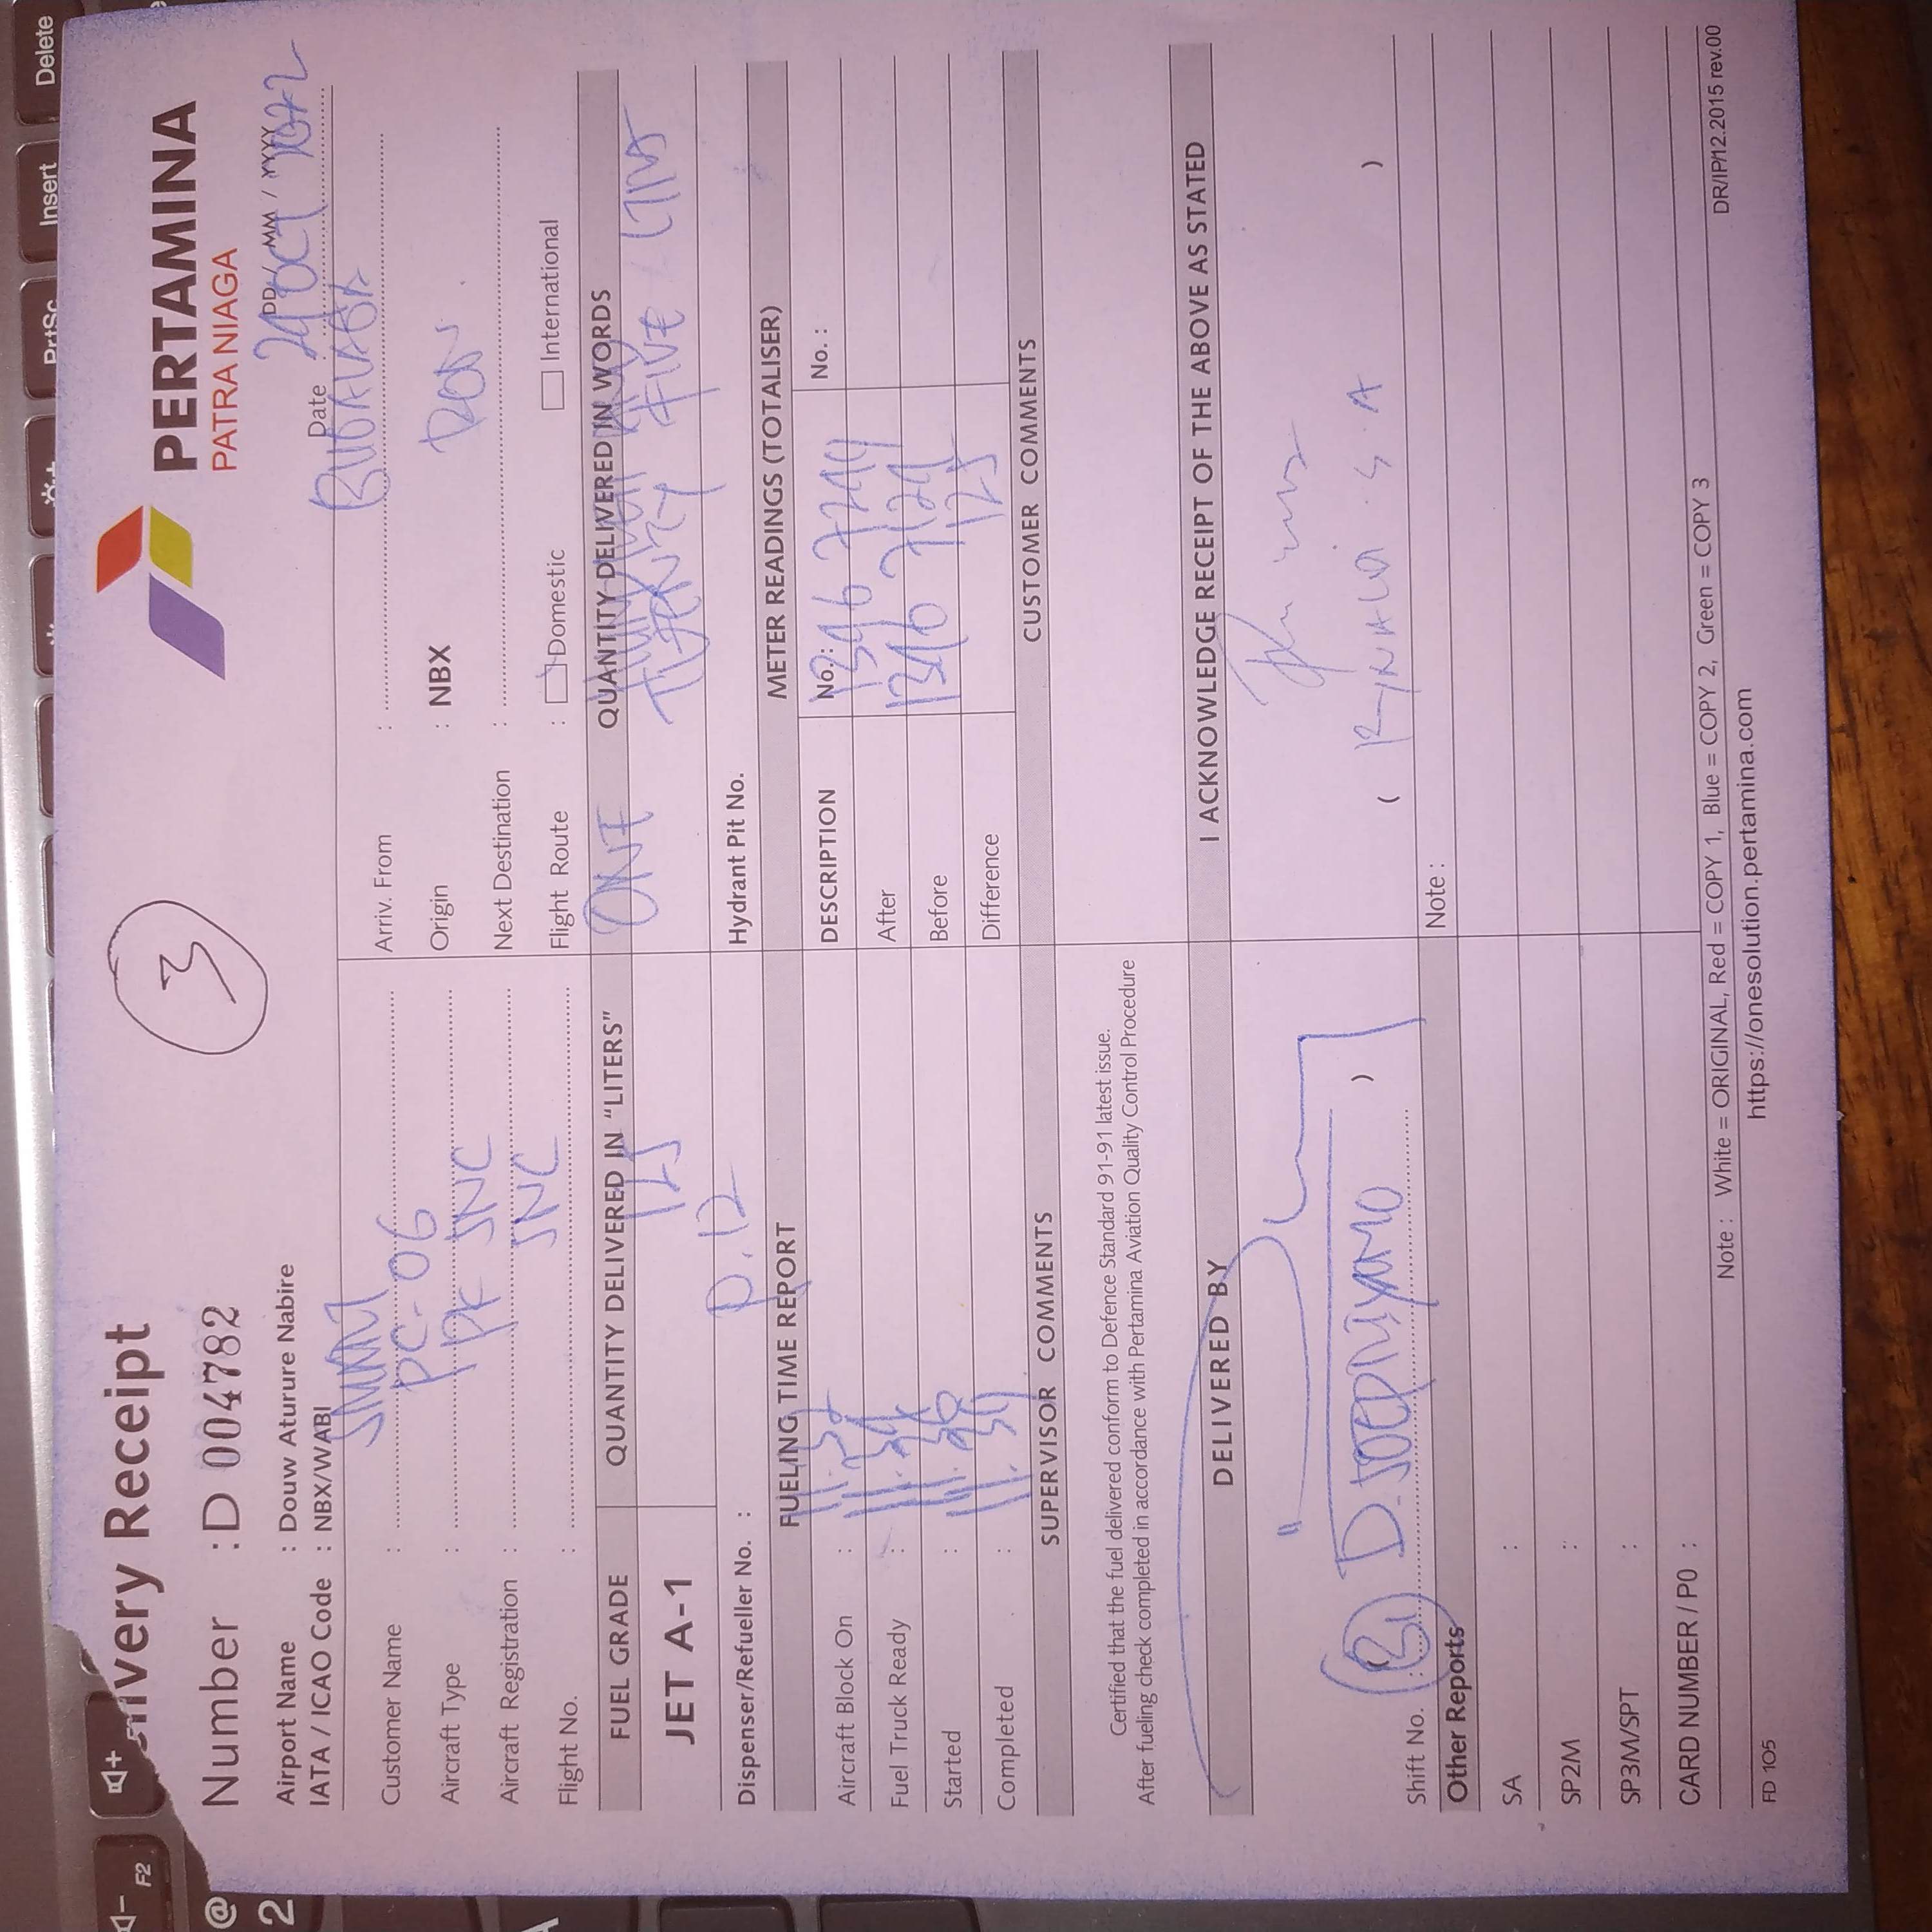 Delete
Insert
PrtSc
F2
@
2
PERTAMINA
PATRA NIAGA
3
ivery Receipt
Number : D 004782
Date DD / MM / YYYY
29 OCT 2022
Airport Name : Douw Aturure Nabire
IATA / ICAO Code : NBX/WABI
Customer Name : SMART
Arriv. From :
Aircraft Type : PC-06
Origin : NBX
Aircraft Registration : PK SNC
Next Destination : RON
Flight No. : SNC
Flight Route : Domestic International
FUEL GRADE
QUANTITY DELIVERED IN "LITERS"
QUANTITY DELIVERED IN WORDS
JET A-1
125
ONE TWENTY FIVE LTRS
Dispenser/Refueller No. : P.12
Hydrant Pit No.
FUELING TIME REPORT
METER READINGS (TOTALISER)
DESCRIPTION No.: No. :
Aircraft Block On :
After
Fuel Truck Ready :
Before
Started :
Difference 125
Completed :
SUPERVISOR COMMENTS
CUSTOMER COMMENTS
Certified that the fuel delivered conform to Defence Standard 91-91 latest issue.
After fueling check completed in accordance with Pertamina Aviation Quality Control Procedure
DELIVERED BY
I ACKNOWLEDGE RECEIPT OF THE ABOVE AS STATED
Shift No. :
Other Reports
Note :
SA :
SP2M :
SP3M/SPT :
CARD NUMBER / PO :
Note : White = ORIGINAL, Red = COPY 1, Blue = COPY 2, Green = COPY 3
DR/IP/12.2015 rev.00
https://onesolution.pertamina.com
FD 105